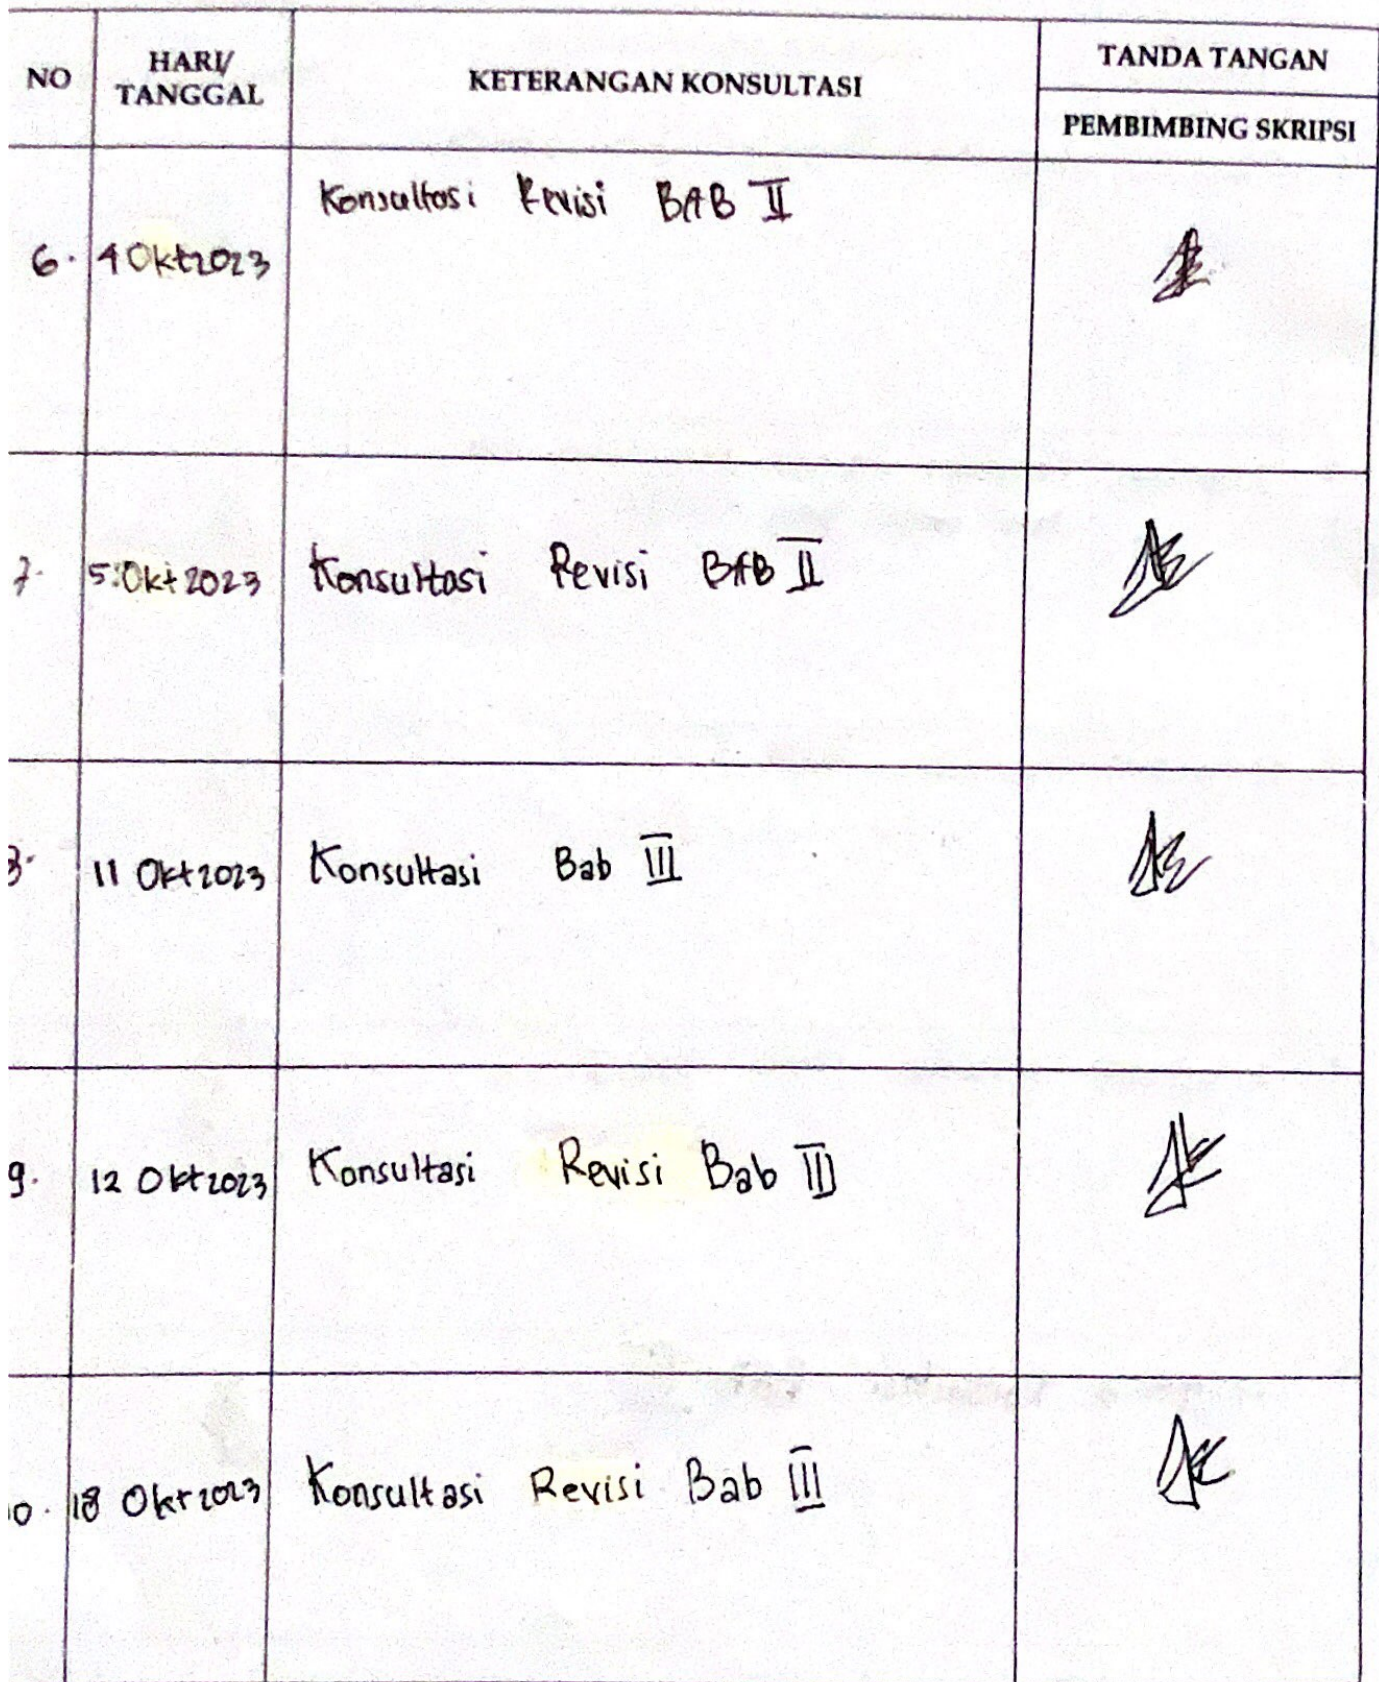 NO
HARI/
TANGGAL
KETERANGAN KONSULTASI
TANDA TANGAN
PEMBIMBING SKRIPSI
Konsultasi Revisi BAB II
6. 4 Okt 2023
7. 5 Okt 2023 Konsultasi Revisi BAB II
8. 11 Okt 2023 Konsultasi Bab III
9. 12 Okt 2023 Konsultasi Revisi Bab III
10. 18 Okt 2023 Konsultasi Revisi Bab III